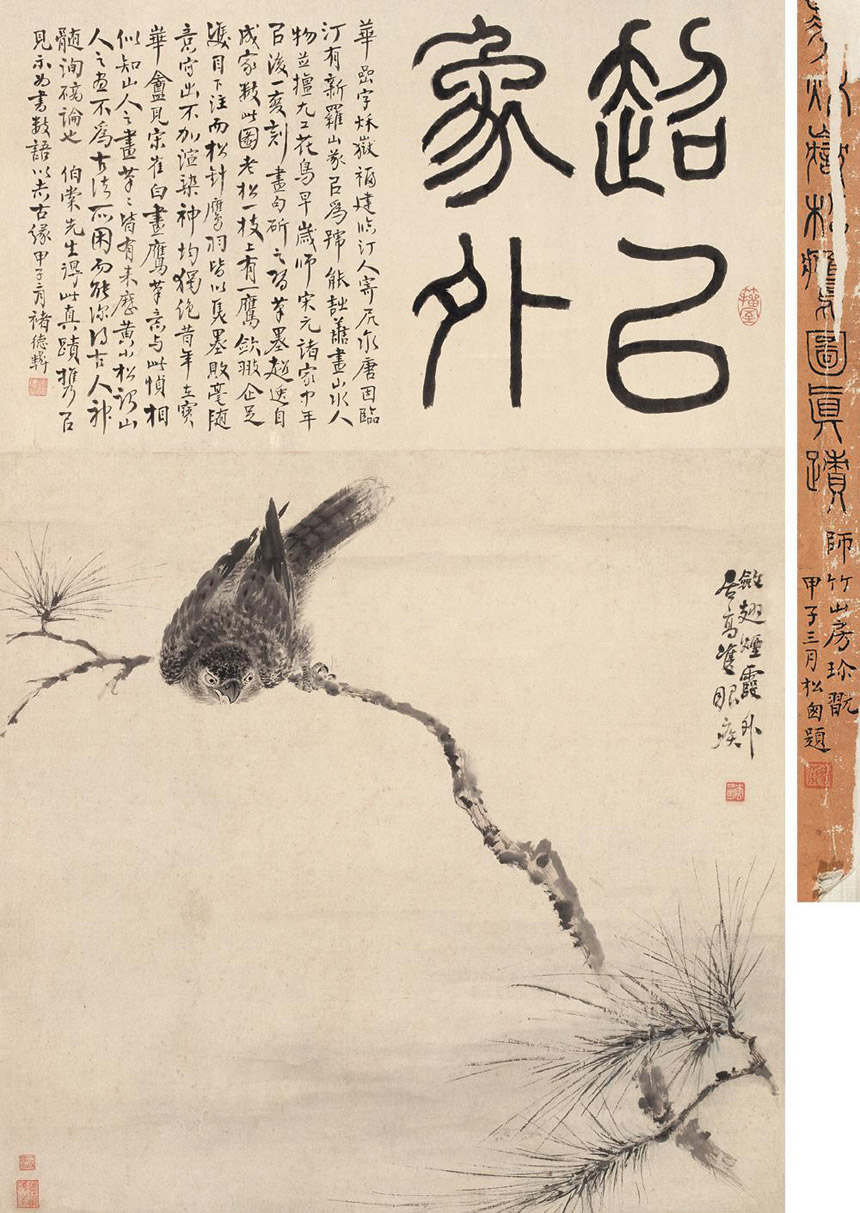 超㠯
象外
華嵒字秋嶽福建临汀人寄居永唐因臨
汀有新羅山㠯為號能詩善畫山水人
物並擅尤工花鳥早歲師宋元諸家中年
㠯後一变刻畫勾斫之習筆墨超逸自
成家数此圖老松一枝上有一鷹斂翅企足
目下注而松針鷹羽皆以焦墨敗毫随
意寫出不加渲染神均獨絶昔年在寶
華盦見宋崔白畫鷹筆意与此幀相
似知山人之畫筆〻皆有来歷黄小松謂山
人之畫不為古法所困而能深得古人神
髓洵碻論也 伯棠先生得此真蹟携㠯
見示為書数語以志古緣甲子二月褚德彝
斂翅煙霞外
居高隼眼疾
秋嶽松鷹圖真蹟 師竹山房珍翫
甲子三月松窗題